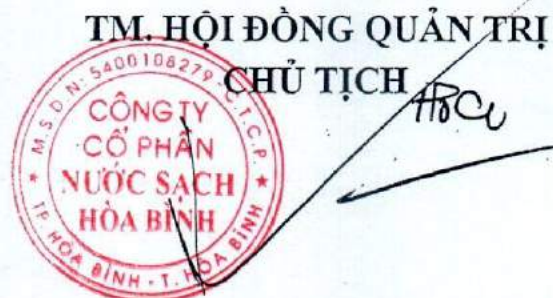 TM. HỘI ĐỒNG QUẢN TRỊ
CHỦ TỊCH
M.S.D.N: 5400108279-C.T.C.P
CÔNG TY
CỔ PHẦN
NƯỚC SẠCH
HÒA BÌNH
TP. HÒA BÌNH - T. HÒA BÌNH